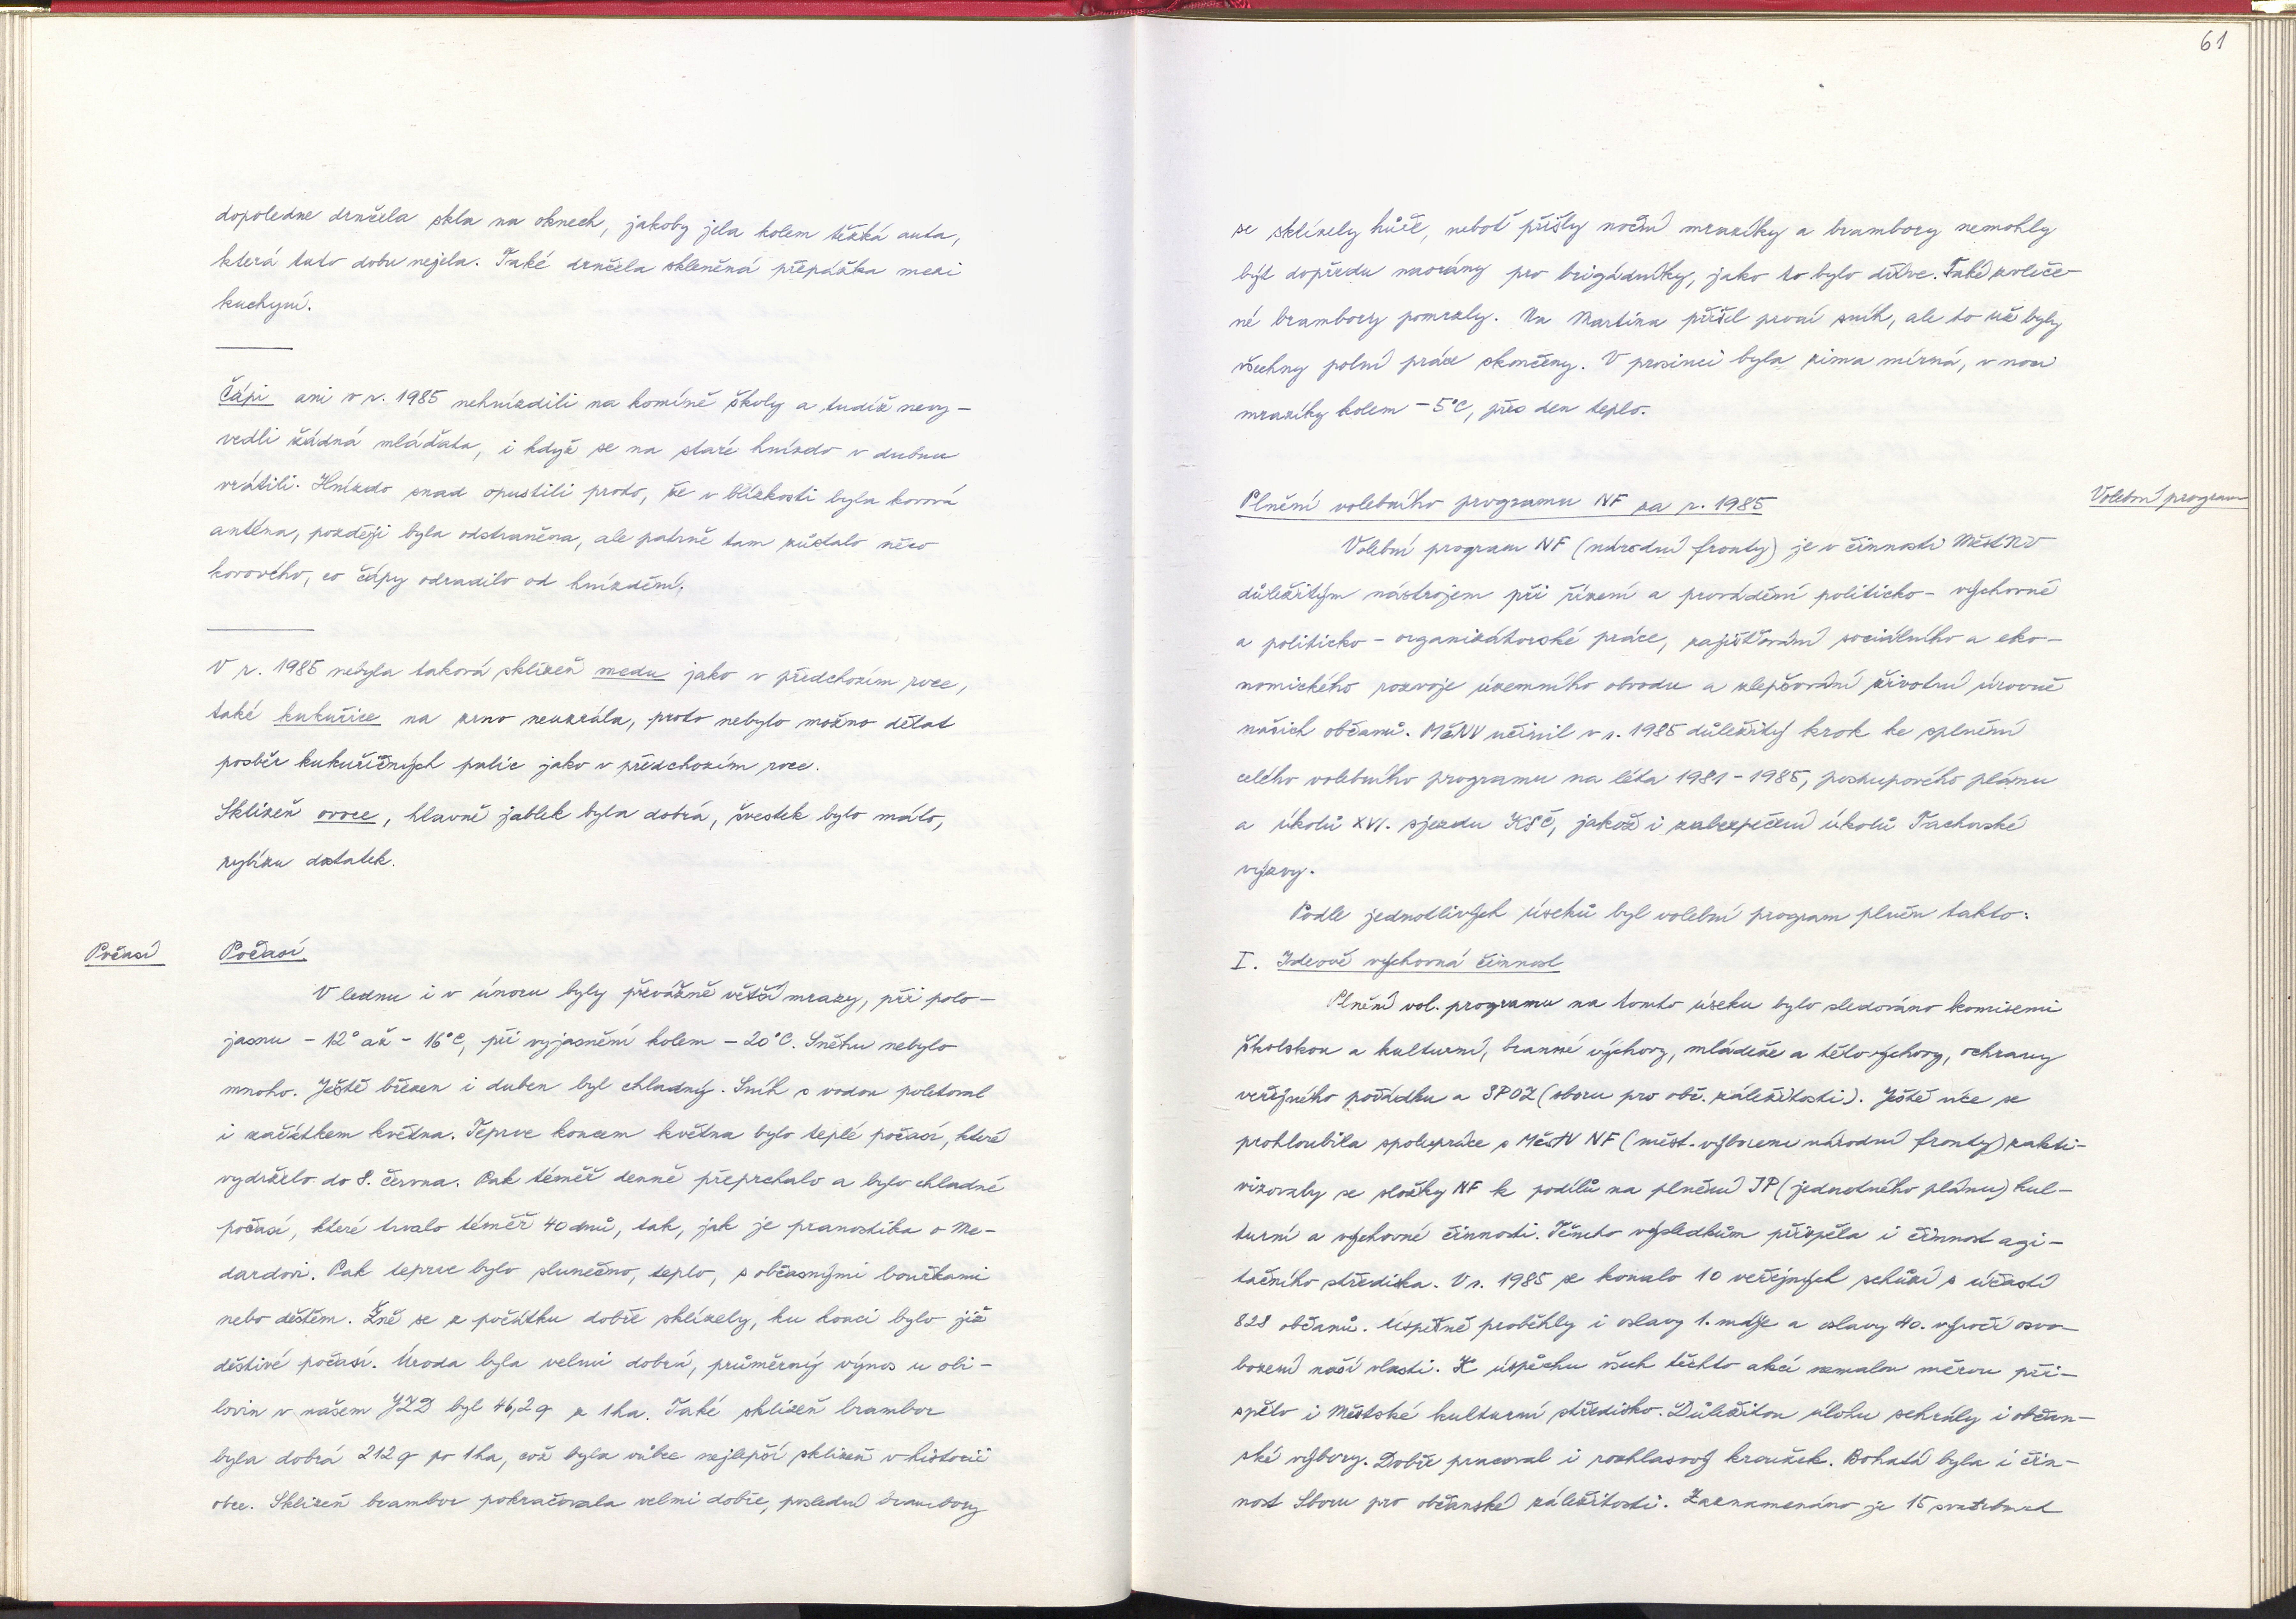 dopoledne drnčela skla na oknech, jakoby jela kolem těžká auta,
která tuto dobu nejela. Také drnčela skleněná přepážka mezi
kuchyní.
Čápi ani v r. 1985 nehnízdili na komíně školy a tudíž nevy-
vedli žádná mláďata, i když se na staré hnízdo v dubnu
vrátili. Hnízdo snad opustili proto, že v blízkosti byla kovová
anténa, později byla odstraněna, ale patrně tam zůstalo něco
kovového, co čápy odradilo od hnízdění.
V r. 1985 nebyla taková sklizeň medu jako v předchozím roce,
také kukuřice na zrno neuzrála, proto nebylo možno dělat
posběr kukuřičných palic jako v předchozím roce.
Sklizeň ovoce, hlavně jablek byla dobrá, švestek bylo málo,
rybízu dostatek.
Počasí
Počasí
V lednu i v únoru byly převážně větší mrazy, při polo-
jasnu - 12° až - 16°C, při vyjasnění kolem - 20°C. Sněhu nebylo
mnoho. Ještě březen i duben byl chladný. Sníh s vodou poletoval
i začátkem května. Teprve koncem května bylo teplé počasí, které
vydrželo do 8. června. Pak téměř denně přeprchalo a bylo chladné
počasí, které trvalo téměř 40 dnů, tak, jak je pranostika o Me-
dardovi. Pak teprve bylo slunečno, teplo, s občasnými bouřkami
nebo deštěm. Žně se z počátku dobře sklízely, ku konci bylo již
deštivé počasí. Úroda byla velmi dobrá, průměrný výnos u obi-
lovin v našem JZD byl 46,2 q z 1 ha. Také sklizeň brambor
byla dobrá 212 q po 1 ha, což byla vůbec nejlepší sklizeň v historii
obce. Sklizeň brambor pokračovala velmi dobře, poslední brambory
61
se sklízely hůře, neboť přišly noční mrazíky a brambory nemohly
být dopředu naorány pro brigádníky, jako to bylo dříve. Také vle­če-
né brambory pomrzly. Na Martina přišel první sníh, ale to už byly
všechny polní práce skončeny. V prosinci byla zima mírná, v noci
mrazíky kolem - 5°C, přes den teplo.
Plnění volebního programu NF za r. 1985
Volební program
Volební program NF (národní fronty) je v činnosti MěstNV
důležitým nástrojem při řízení a provádění politicko - výchovné
a politicko - organizátorské práce, zajišťování sociálního a eko-
nomického rozvoje územního obvodu a zlepšování životní úrovně
našich občanů. MěNV učinil v r. 1985 důležitý krok ke splnění
celého volebního programu na léta 1981 - 1985, postupového plánu
a úkolů XVI. sjezdu KSČ, jakož i zabezpečení úkolů Tachovské
výzvy.
Podle jednotlivých úseků byl volební program plněn takto:
I. Ideově výchovná činnost
Plnění vol. programu na tomto úseku bylo sledováno komisemi
školskou a kulturní, branné výchovy, mládeže a tělovýchovy, ochrany
veřejného pořádku a SPOZ (sboru pro obč. záležitosti). Ještě více se
prohloubila spolupráce s MěstV NF (měst. výborem národní fronty) zakti-
vizovaly se složky NF k podílu na plnění JP (jednotného plánu) kul-
turní a výchovné činnosti. Těmto výsledkům přispěla i činnost agi-
tačního střediska. V r. 1985 se konalo 10 veřejných schůzí s účastí
828 občanů. Úspěšně proběhly i oslavy 1. máje a oslavy 40. výročí osvo-
bození naší vlasti. K úspěchu všech těchto akcí nemalou měrou při-
spělo i Městské kulturní středisko. Důležitou úlohu sehrály i občan-
ské výbory. Dobře pracoval i rozhlasový kroužek. Bohatá byla i čin-
nost Sboru pro občanské záležitosti. Zaznamenáno je 15 svatebních